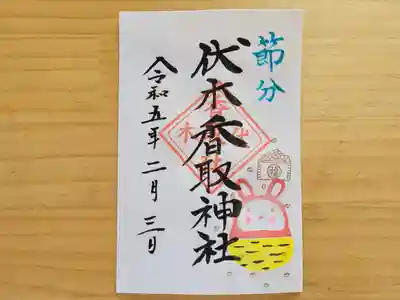 節分
伏木香取神社
令和五年二月三日